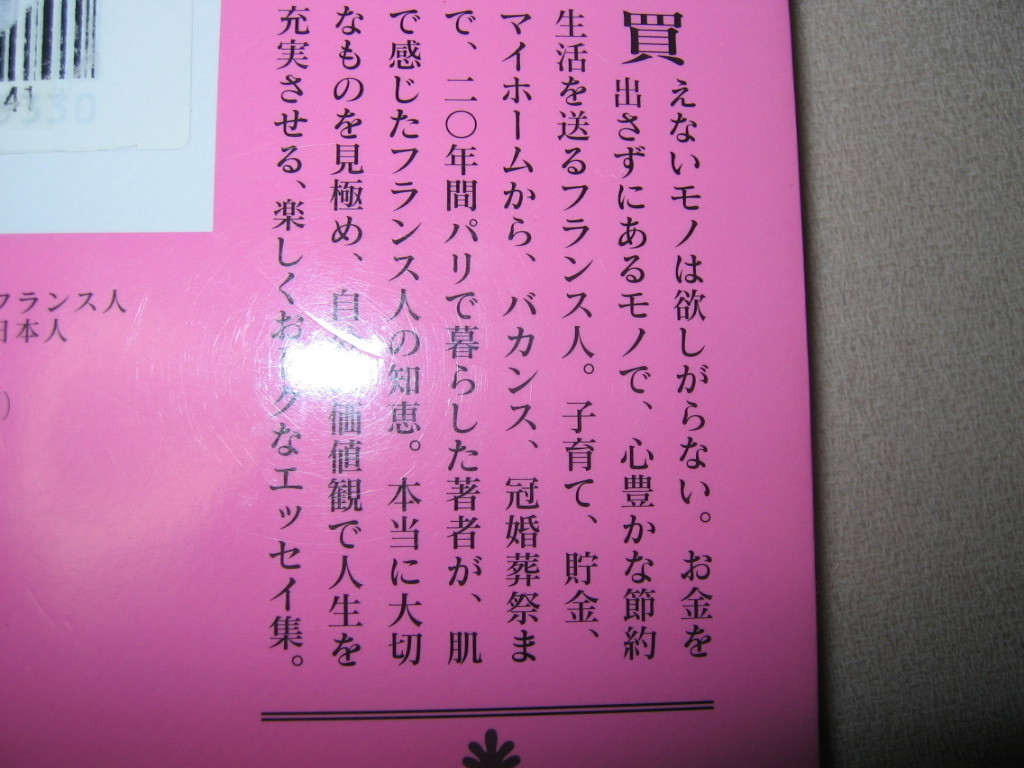 買えないモノは欲しがらない。お金を
出さずにあるモノで、心豊かな節約
生活を送るフランス人。子育て、貯金、
マイホームから、バカンス、冠婚葬祭ま
で、二〇年間パリで暮らした著者が、肌
で感じたフランス人の知恵。本当に大切
なものを見極め、自 価値観で人生を
充実させる、楽しくお クなエッセイ集。
フランス人
日本人
41
0330